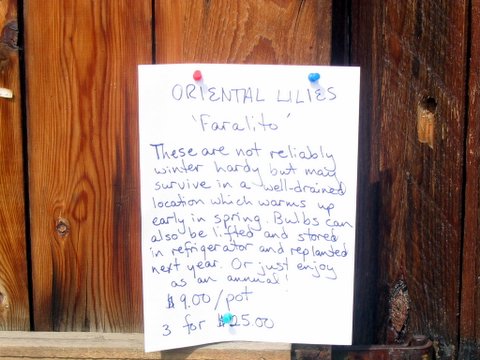 ORIENTAL LILIES
'Faralito'
These are not reliably
winter hardy but may
survive in a well-drained
location which warms up
early in spring. Bulbs can
also be lifted and stored
in refrigerator and replanted
next year. Or just enjoy
as an annual!
$9.00/pot
3 for $25.00